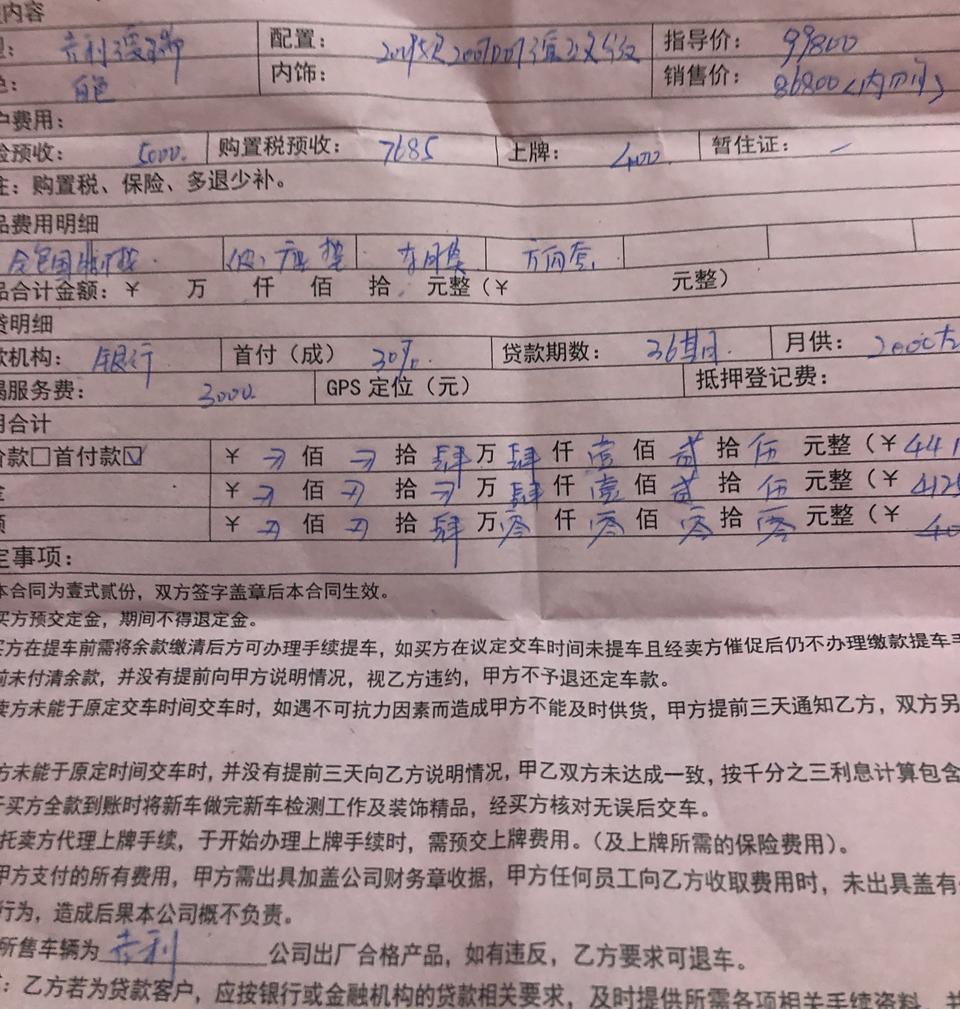 内容
吉利 配置: 指导价: 99800
白色 内饰: 销售价: 86800
户费用:
预收: 5000. 购置税预收: 7685 上牌: 400. 暂住证: —
注: 购置税、保险、多退少补。
品费用明细
方向套.
品合计金额: ¥ 万 仟 佰 拾 元整(¥ 元整)
贷明细
款机构: 银行 首付(成) 30%. 贷款期数: 36期. 月供: 2000
服务费: 3000. GPS 定位(元) 抵押登记费:
用合计
价款□首付款☑ ¥ 佰 拾 肆 万 肆 仟 壹 佰 贰 拾 伍 元整(¥ 441
金 ¥ 佰 拾 万 肆 仟 壹 佰 贰 拾 伍 元整(¥ 412
额 ¥ 佰 拾 肆 万 零 仟 零 佰 零 拾 零 元整(¥ 40
定事项:
本合同为壹式贰份，双方签字盖章后本合同生效。
买方预交定金，期间不得退定金。
买方在提车前需将余款缴清后方可办理手续提车，如买方在议定交车时间未提车且经卖方催促后仍不办理缴款提车手
前未付清余款，并没有提前向甲方说明情况，视乙方违约，甲方不予退还定车款。
卖方未能于原定交车时间交车时，如遇不可抗力因素而造成甲方不能及时供货，甲方提前三天通知乙方，双方另
方未能于原定时间交车时，并没有提前三天向乙方说明情况，甲乙双方未达成一致，按千分之三利息计算包含
于买方全款到账时将新车做完新车检测工作及装饰精品，经买方核对无误后交车。
托卖方代理上牌手续，于开始办理上牌手续时，需预交上牌费用。(及上牌所需的保险费用)。
甲方支付的所有费用，甲方需出具加盖公司财务章收据，甲方任何员工向乙方收取费用时，未出具盖有
行为，造成后果本公司概不负责。
所售车辆为 吉利 公司出厂合格产品，如有违反，乙方要求可退车。
: 乙方若为贷款客户，应按银行或金融机构的贷款相关要求，及时提供所需各项相关手续资料，并